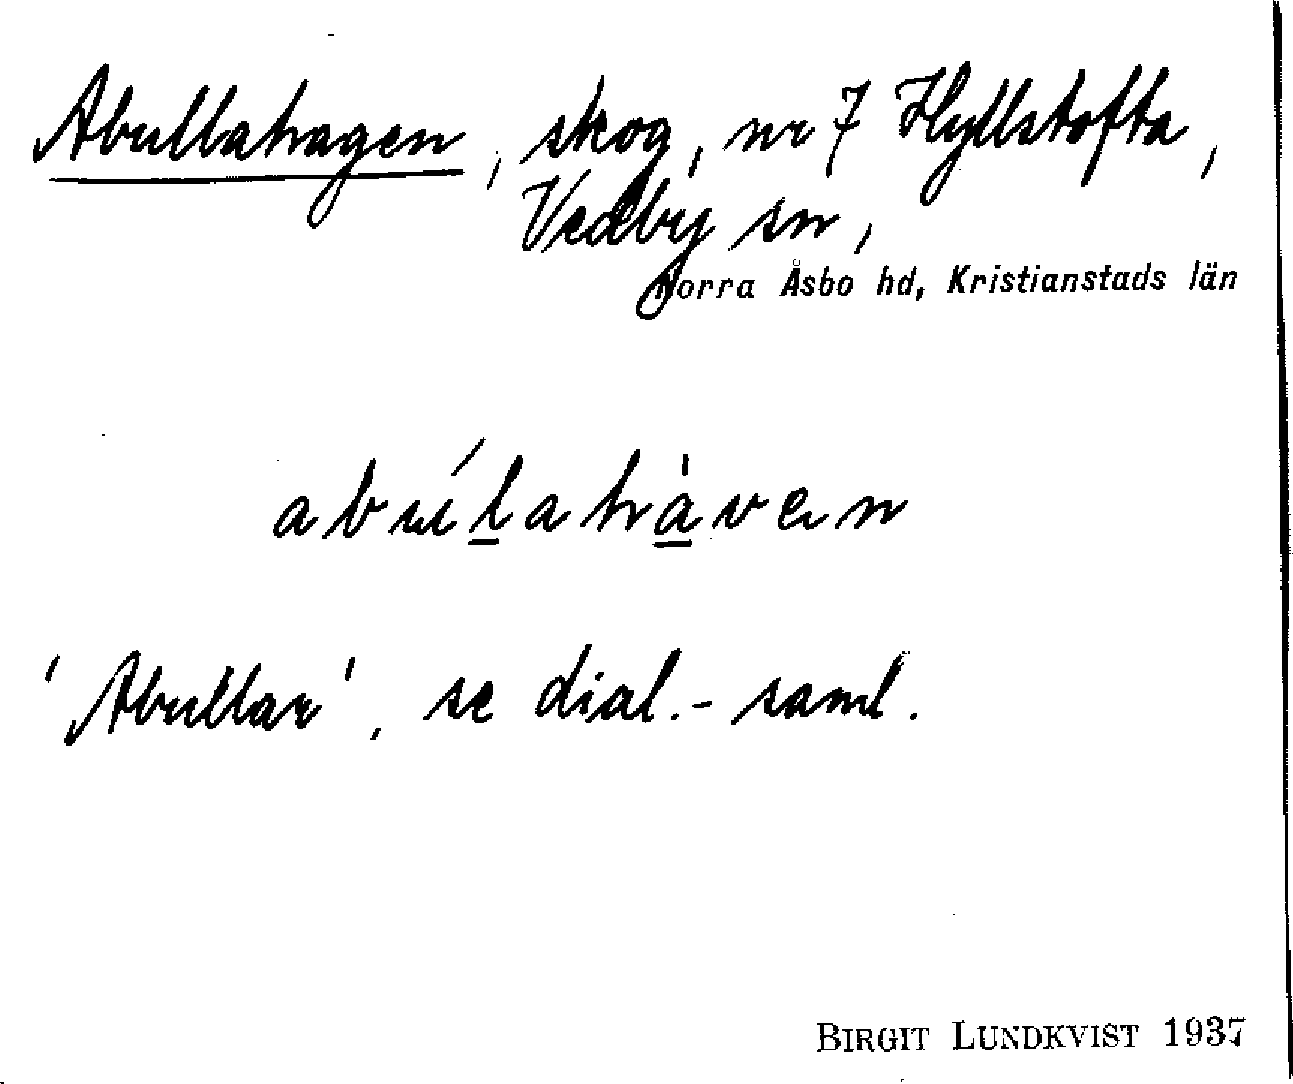 Abullahagen, skog, nr 7 Hyllstofta,
Vedby sn,
Norra Åsbo hd, Kristianstads län
abúlahàven
'Abullar', se dial.-saml.
BIRGIT LUNDKVIST 1937